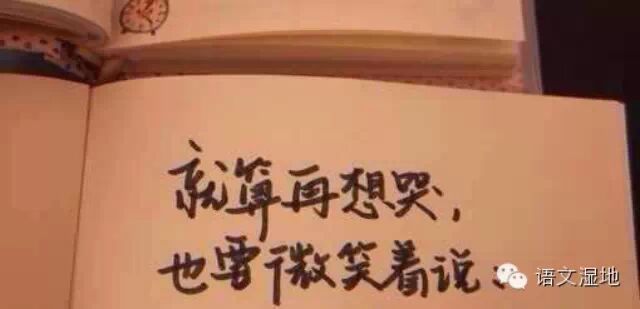 就算再想哭，
也要微笑着说：
语文湿地